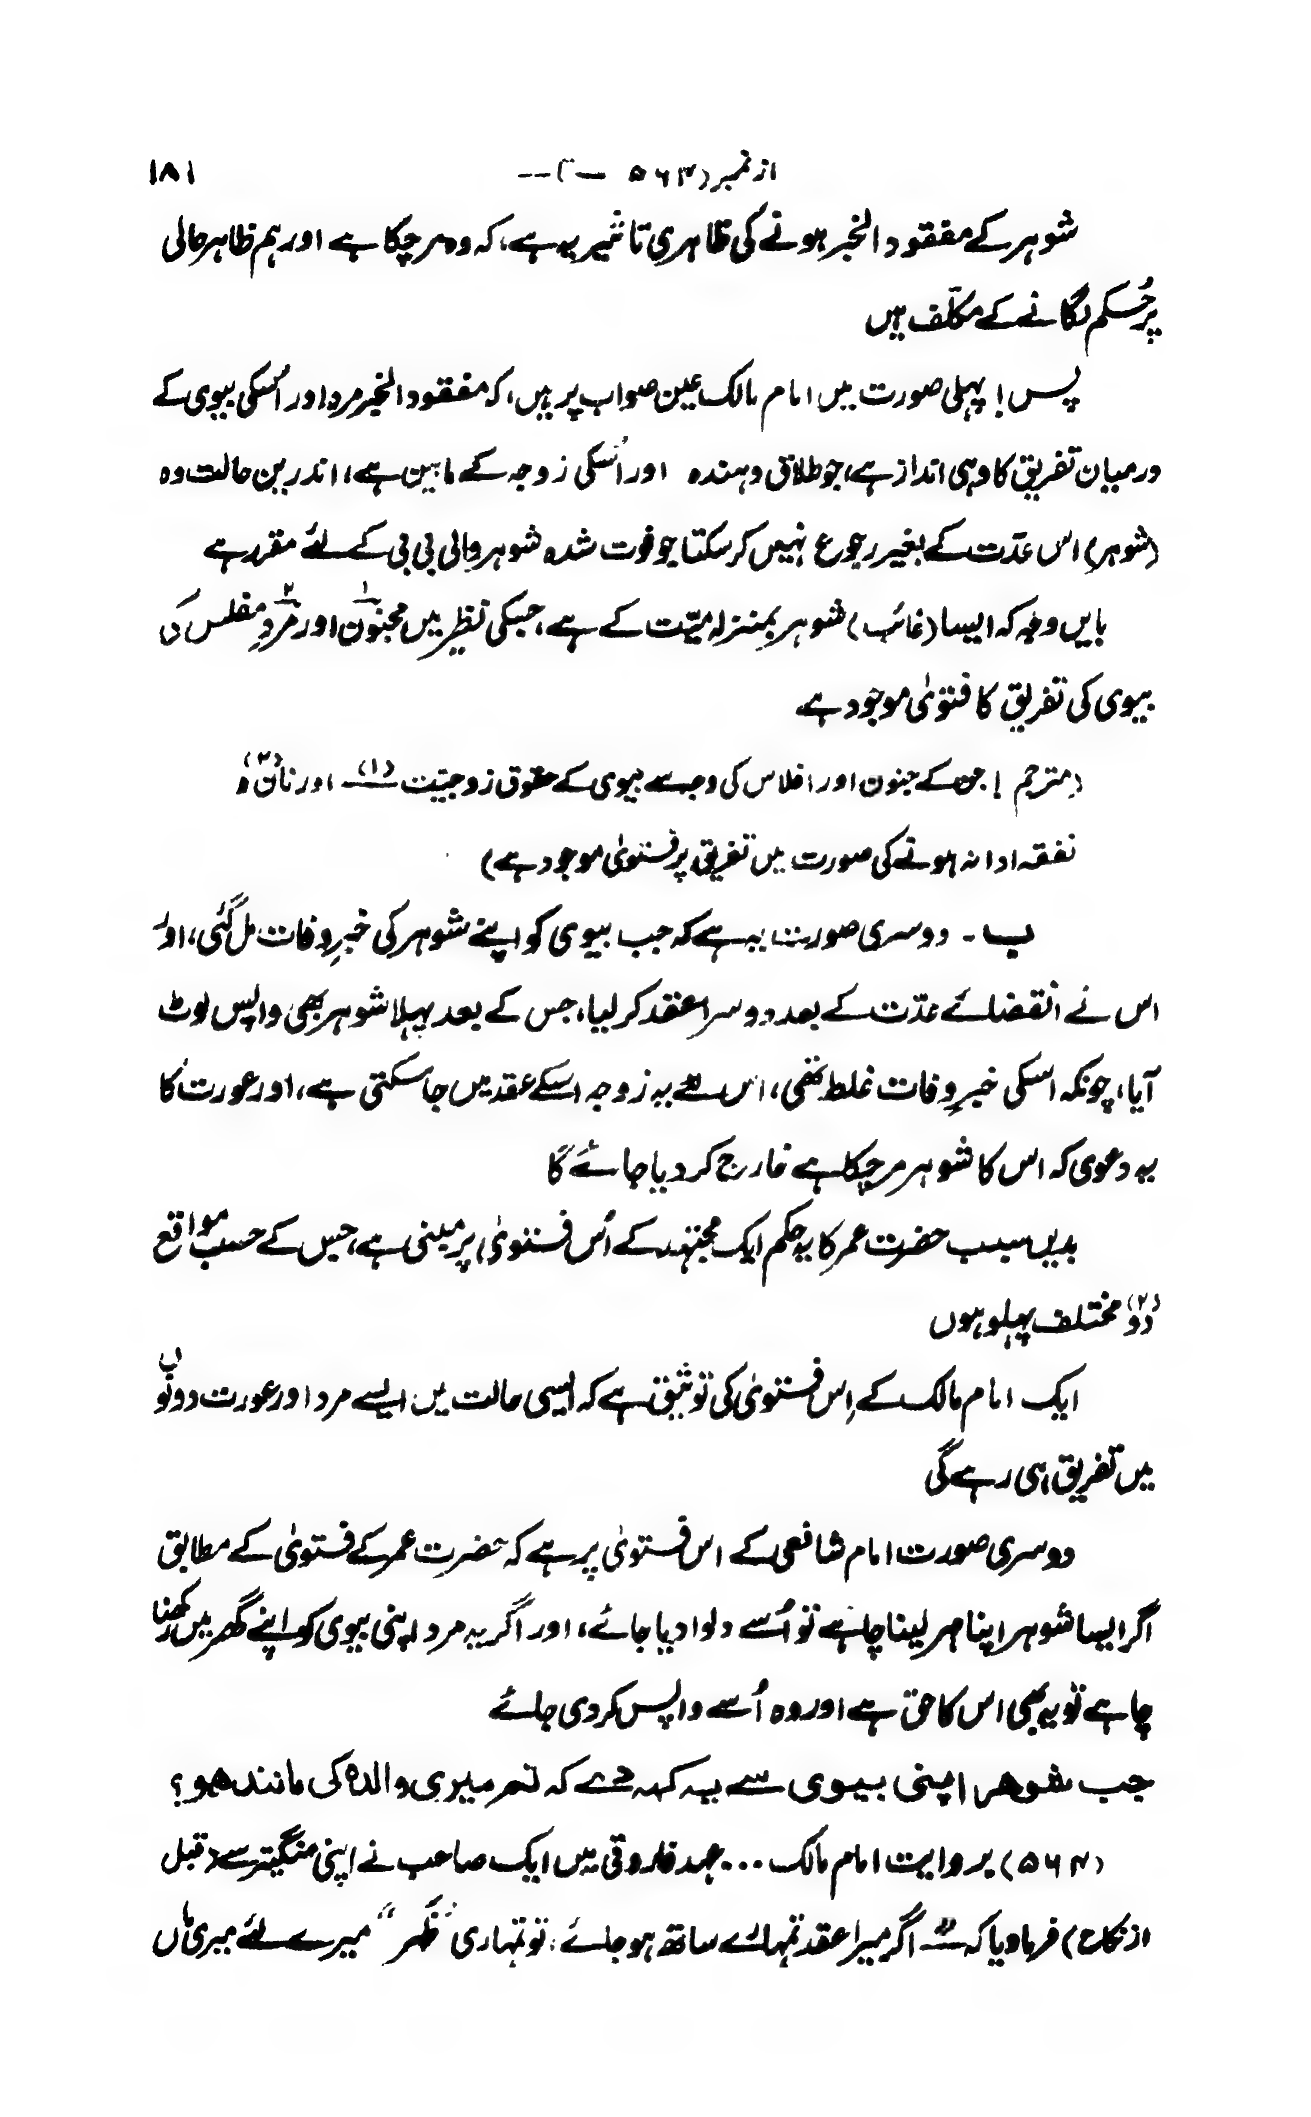 از نمبر (۵۶۳ — ) -- ۱۸۱
شوہر کے مفقود الخبر ہونے کی ظاہری تاثیر یہ ہے، کہ وہ مر چکا ہے اور ہم ظاہر حالی
پر حُکم لگانے کے مکلّف ہیں
پس! پہلی صورت میں امام مالک عین صواب پر ہیں، کہ مفقود الخبر مرد اور اُسکی بیوی کے
درمیان تفریق کا وہی انداز ہے، جو طلاق دہندہ اور اُسکی زوجہ کے مابین ہے، اندریں حالت وہ
(شوہر) اس عدّت کے بغیر رجوع نہیں کر سکتا جو فوت شدہ شوہر والی بی بی کے لئے مقرر ہے
بایں وجہ کہ ایسا (غائب) شوہر بمنزلہ میّت کے ہے، جسکی نظیر میں مجنون۱ اور مردِ۲ مفلس کی
بیوی کی تفریق کا فتویٰ موجود ہے
(مترجم! جن کے جنون اور افلاس کی وجہ سے بیوی کے حقوق زوجیّت (۱) اور نان (۲) و
نفقہ ادا نہ ہونے کی صورت میں تفریق پر فتویٰ موجود ہے)
ب - دوسری صورت یہ ہے کہ جب بیوی کو اپنے شوہر کی خبرِ وفات مل گئی، اور
اس نے انقضائے عدّت کے بعد دوسرا عقد کر لیا، جس کے بعد پہلا شوہر بھی واپس لوٹ
آیا، چونکہ اسکی خبرِ وفات غلط تھی، اس لئے یہ زوجہ اسکے عقد میں جا سکتی ہے، اور عورت کا
یہ دعویٰ کہ اس کا شوہر مر چکا ہے خارج کر دیا جائے گا
بدیں سبب حضرت عمر کا یہ حکم ایک مجتہد کے اُس فتویٰ پر مبنی ہے، جس کے حسب مواقع
دو (۲) مختلف پہلو ہوں
ایک امام مالک کے اِس فتویٰ کی توثیق ہے کہ ایسی حالت میں ایسے مرد اور عورت دونوں
میں تفریق ہی رہے گی
دوسری صورت امام شافعی کے اس فتویٰ پر ہے کہ حضرت عمر کے فتویٰ کے مطابق
اگر ایسا شوہر اپنا مہر لینا چاہے تو اُسے دلوا دیا جائے، اور اگر یہ مرد اپنی بیوی کو اپنے گھر میں رکھنا
چاہے تو یہ بھی اس کا حق ہے اور وہ اُسے واپس کر دی جائے
جب شوہر اپنی بیوی سے یہ کہہ دے کہ تم میری والدہ کی مانند ہو؟
(۵۶۴) بروایت امام مالک ... عہد فاروقی میں ایک صاحب نے اپنی منگیتر سے (قبل
از نکاح) فرما دیا کہ " اگر میرا عقد تمہارے ساتھ ہو جائے، تو تمہاری "ظَہر" میرے لئے میری ماں